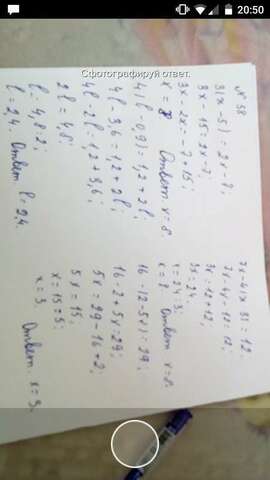 20:50
Сфотографируй ответ.
№ 38
3(x-5) = 2x-7;
3x-15=2x-7;
3x-2x=-7+15;
x=8 Ответ: x=8.
4(l-0,9)=1,2+2l;
4l-3,6=1,2+2l;
4l-2l=1,2+3,6;
2l=4,8;
l=4,8:2;
l=2,4. Ответ: l=2,4.
7x-4(x+3)=12;
7x-4x-12=12;
3x=12+12;
3x=24;
x=24:3;
x=8. Ответ: x=8.
16-(2-5x)=29;
16-2+5x=29;
5x=29-16+2;
5x=15;
x=15:5;
x=3. Ответ: x=3.